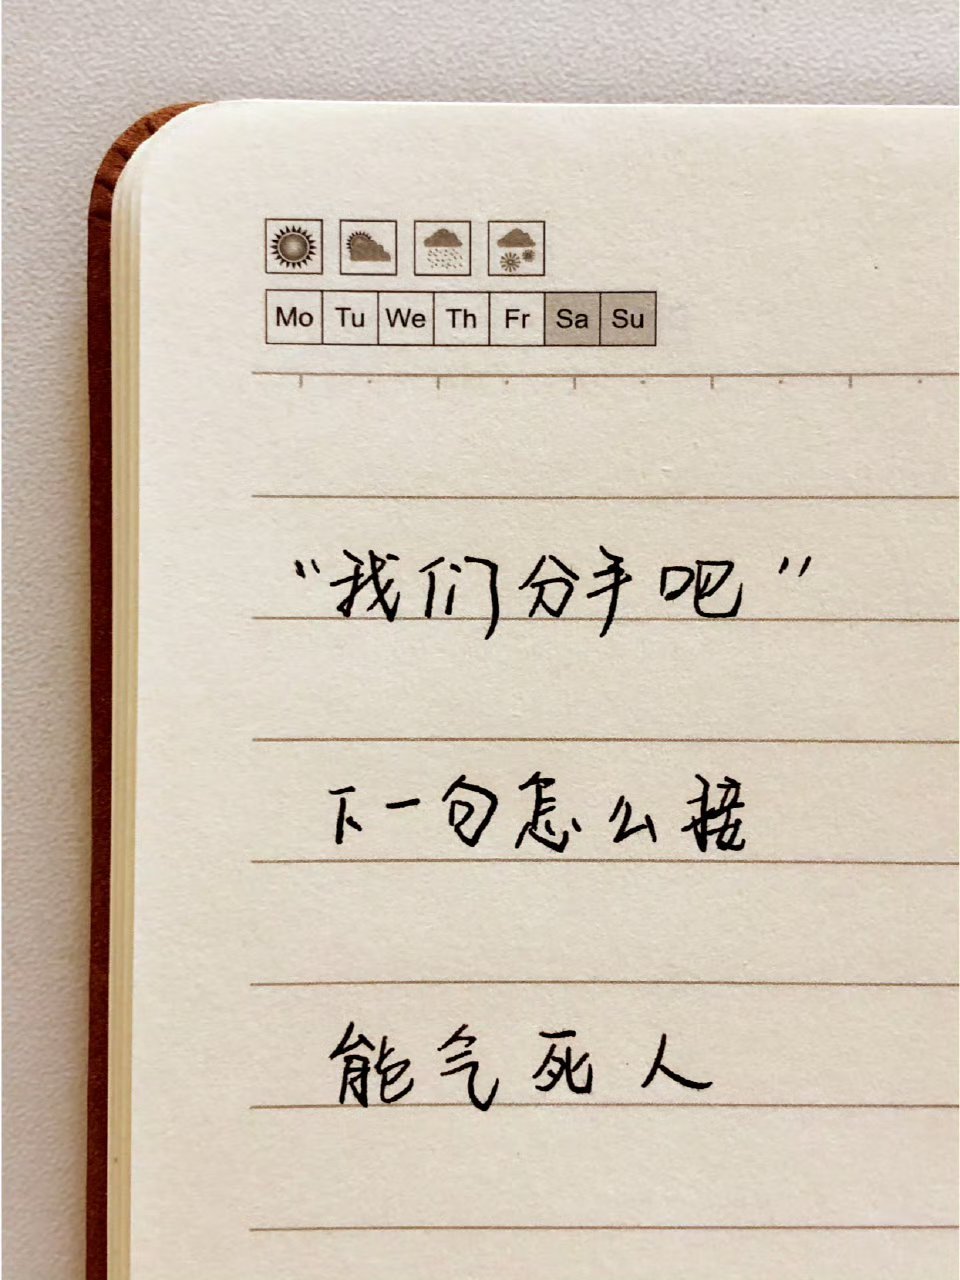 Mo Tu We Th Fr Sa Su
“我们分手吧”
下一句怎么接
能气死人